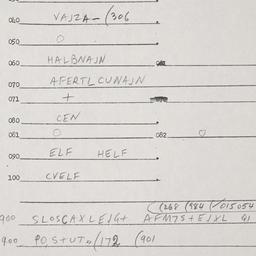 040 VAJZA-(306
050 O
060 HALBNAJN
070 AFERTL CUNAJN
071 +
080 CEN
081 O 082 O
090 ELF HELF
100 CVELF
(268 (984 (/015054
900 SLOSGAXLEJG+ AFM7S+EJXL GI
900 POS+UT (172 (901